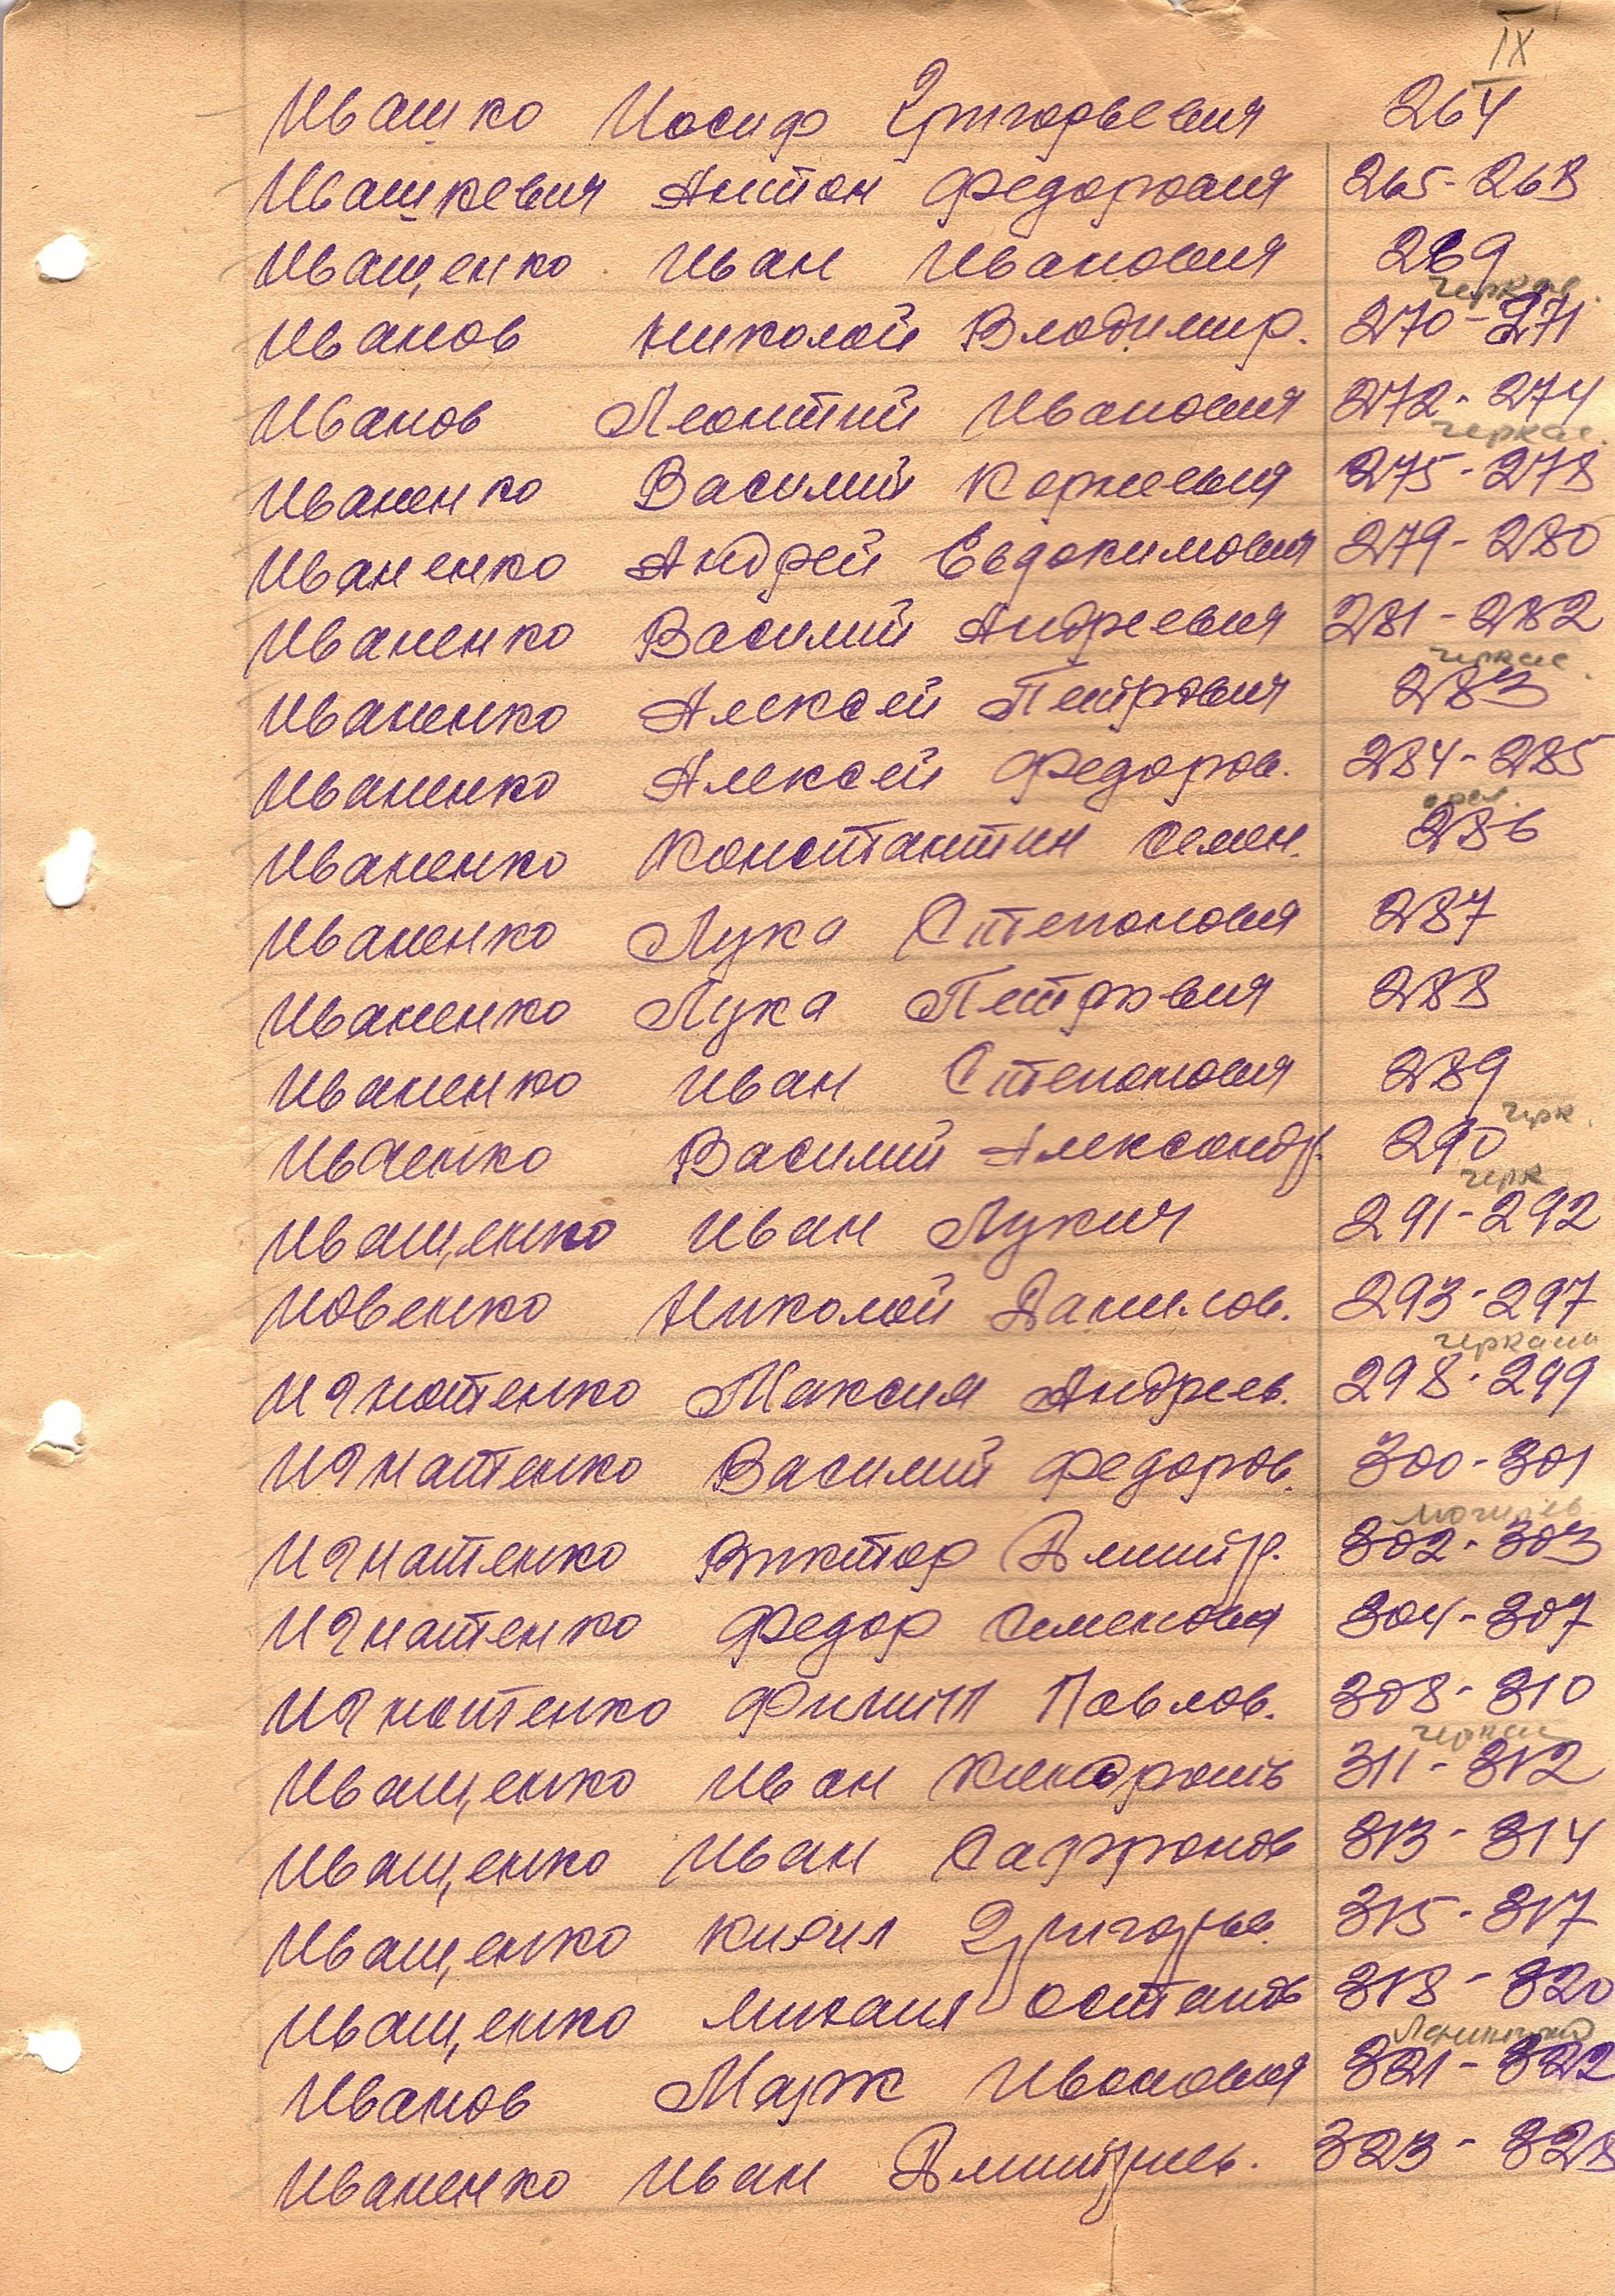 IX
Ивашко Иосиф Григорьевич 264
Ивашкевич Антон Федорович 265-268
Иващенко Иван Иванович 269
Черкас.
Иванов Николай Владимир. 270-271
Иванов Леонтий Иванович 272-274
Черкас.
Иваненко Василий Корнеевич 275-278
Иваненко Андрей Евдокимович 279-280
Иваненко Василий Андреевич 281-282
Черкас.
Иваненко Алексей Петрович 283
Иваненко Алексей Федоров. 284-285
Иваненко Константин Семен. 286
Иваненко Лука Степанович 287
Иваненко Лука Петрович 288
Иваненко Иван Степанович 289
Черк.
Иваненко Василий Александр. 290
Черк
Иващенко Иван Лукич 291-292
Иовенко Николай Данилов. 293-297
Игнатенко Максим Андреев. 298-299
Игнатенко Василий Федоров. 300-301
Могилев
Игнатенко Виктор Дмитр. 302-303
Игнатенко Федор Семенович 304-307
Игнатенко Филипп Павлов. 308-310
Иващенко Иван Кондрать 311-312
Иващенко Иван Сафронов 313-314
Иващенко Кирил Григорьев. 315-317
Иващенко Михаил Остапов 318-320
Иванов Марк Иванович 321-322
Иваненко Иван Дмитриев. 323-328